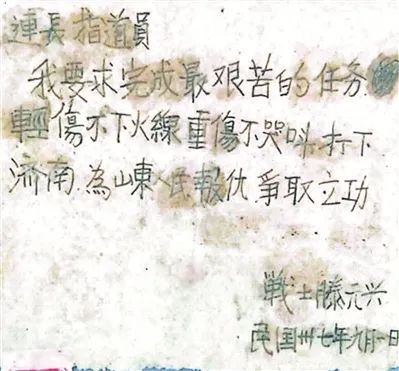 連長 指道員
我要求完成最艰苦的任务
輕傷不下火線重傷不哭叫打下
济南為山東人民報仇爭取立功
戦士滕元兴
民国卅七年九月一日